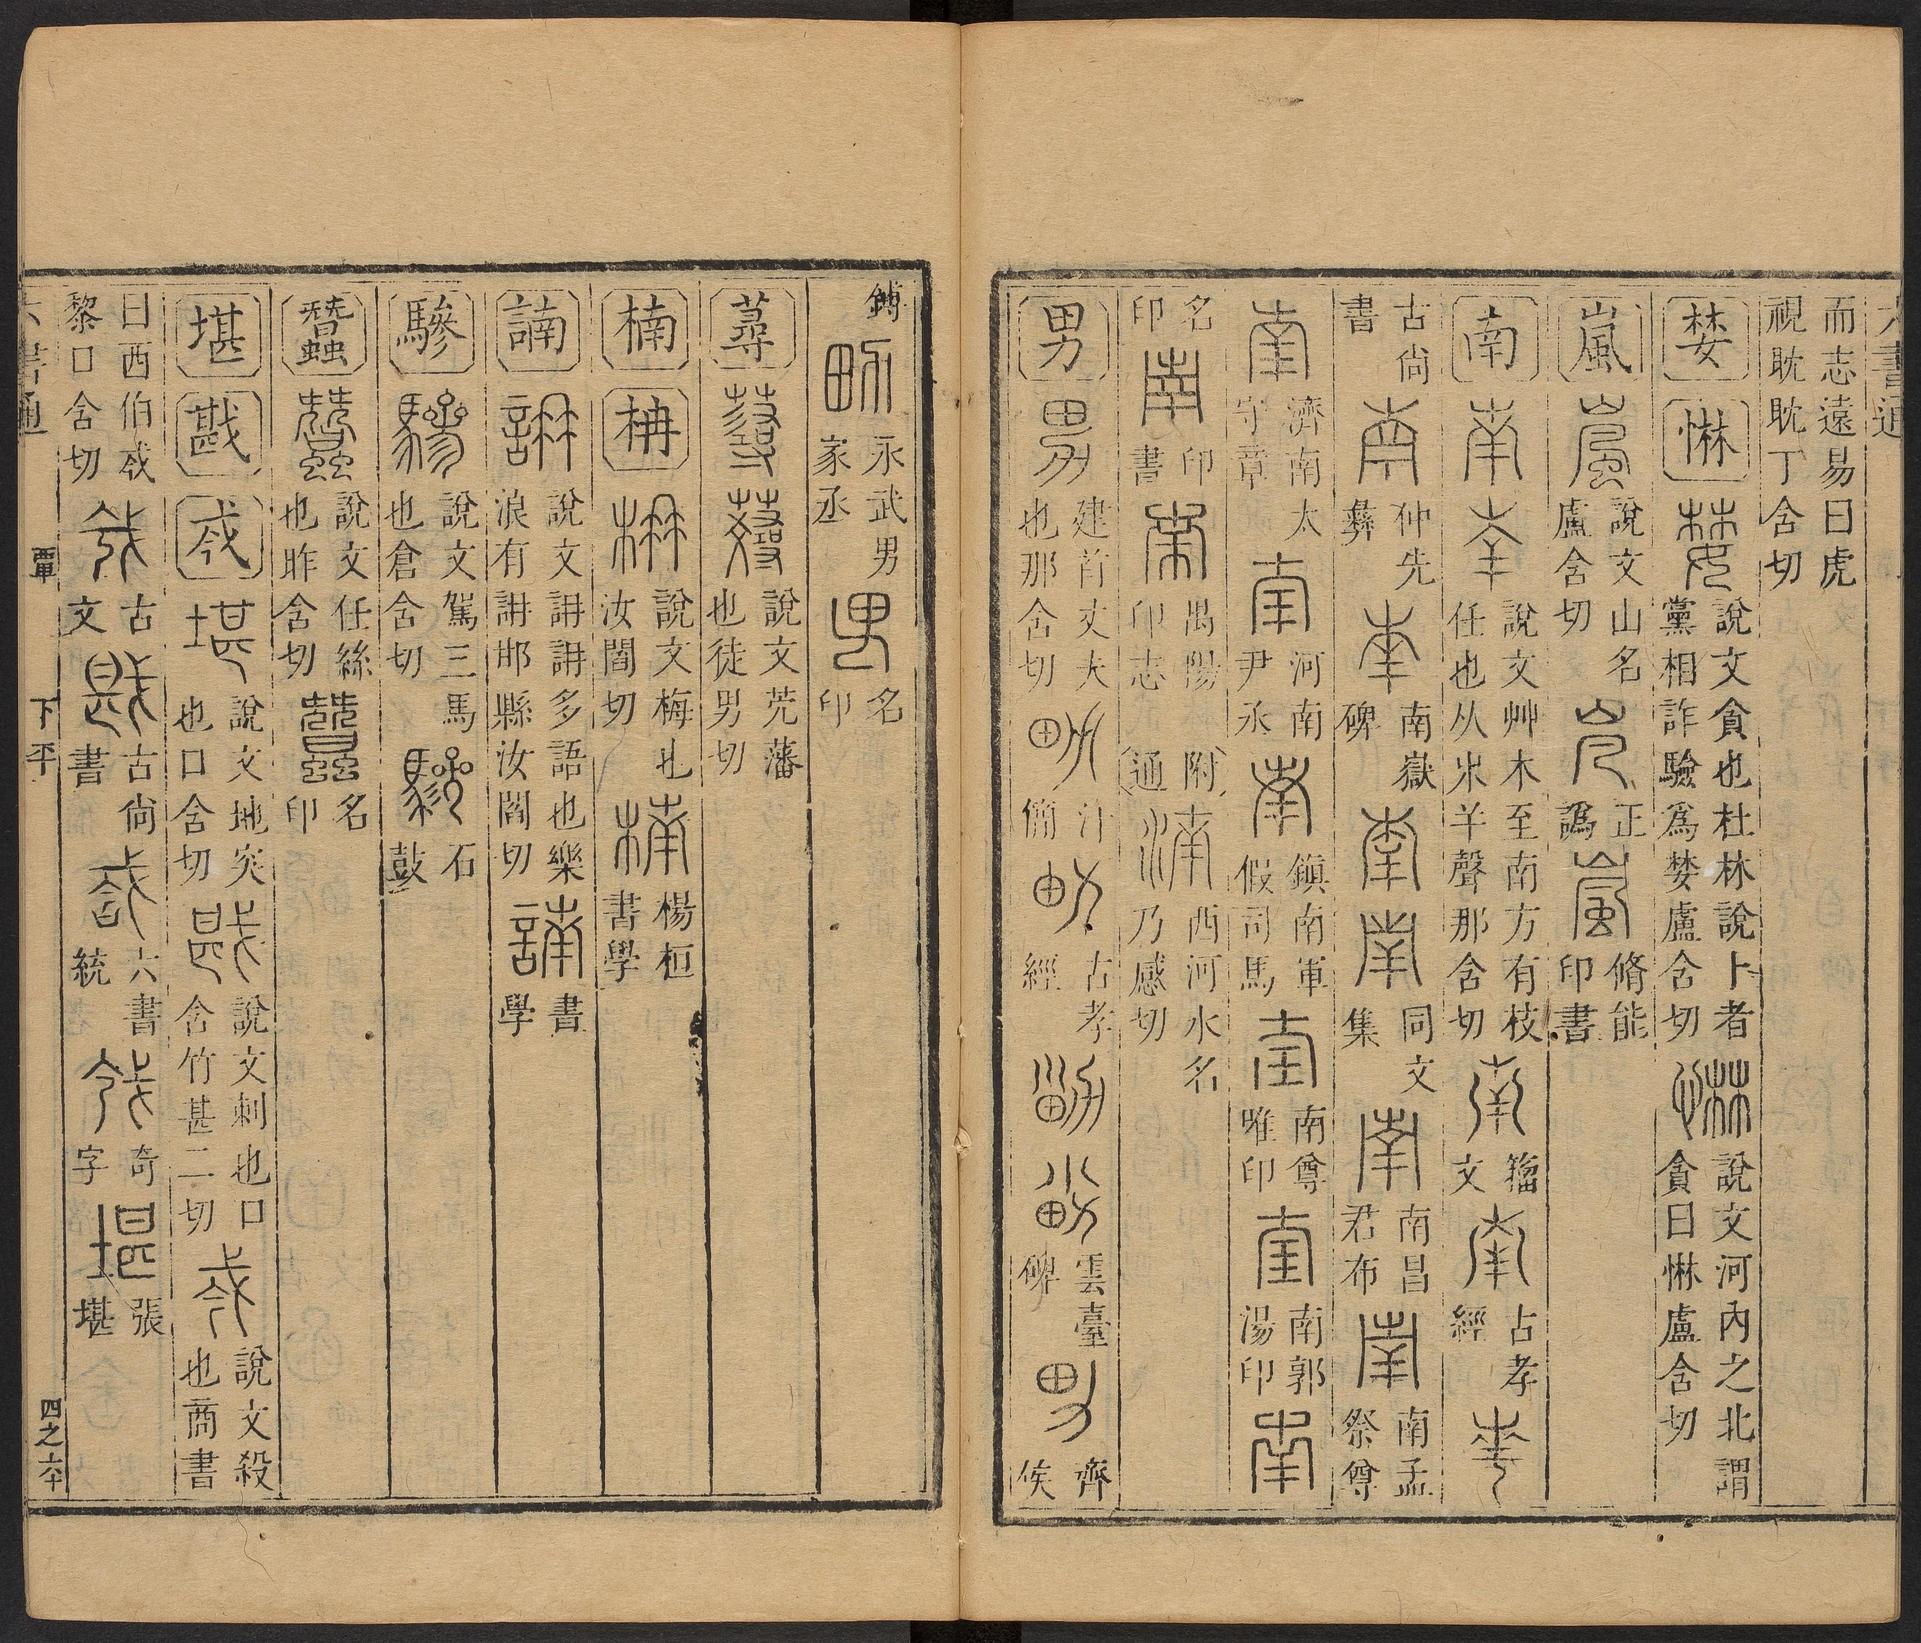 六書通
而志遠易曰虎
視耽耽丁含切
婪 惏 說文貪也杜林說卜者
黨相詐驗爲婪盧含切 說文河內之北謂
貪曰惏盧含切
嵐 說文山名
盧含切 正
譌 脩能
印書
南 說文艸木至南方有枝
任也从𣎵𢆉聲那含切 籀
文 古孝
經
古尙
書 仲先
彝 南嶽
碑 同文
集 南昌
君布 南孟
祭尊
濟南太
守章 河南
尹丞 鎭南軍
假司馬 南尊
唯印 南郭
湯印
名
印 印
書 禺陽
印志 附
通 西河水名
乃感切
男 建首丈夫
也那含切 汗
簡 古孝
經 雲臺
碑 齊
侯
鎛 永武男
家丞 名
印
蕁 說文芫藩
也徒男切
楠 枏 說文梅也
汝閻切 楊桓
書學
諵 說文詽詽多語也樂
浪有詽邯縣汝閻切 書
學
驂 說文駕三馬
也倉含切 石
鼓
蠶 說文任絲
也昨含切 名
印
堪 戡 𢦟 說文地突
也口含切 說文刺也口
含竹甚二切 說文殺
也商書
曰西伯𢦟
黎口含切 古
文 古尙
書 六書
統 奇
字 張
堪
六書通 覃 下平 四之六十